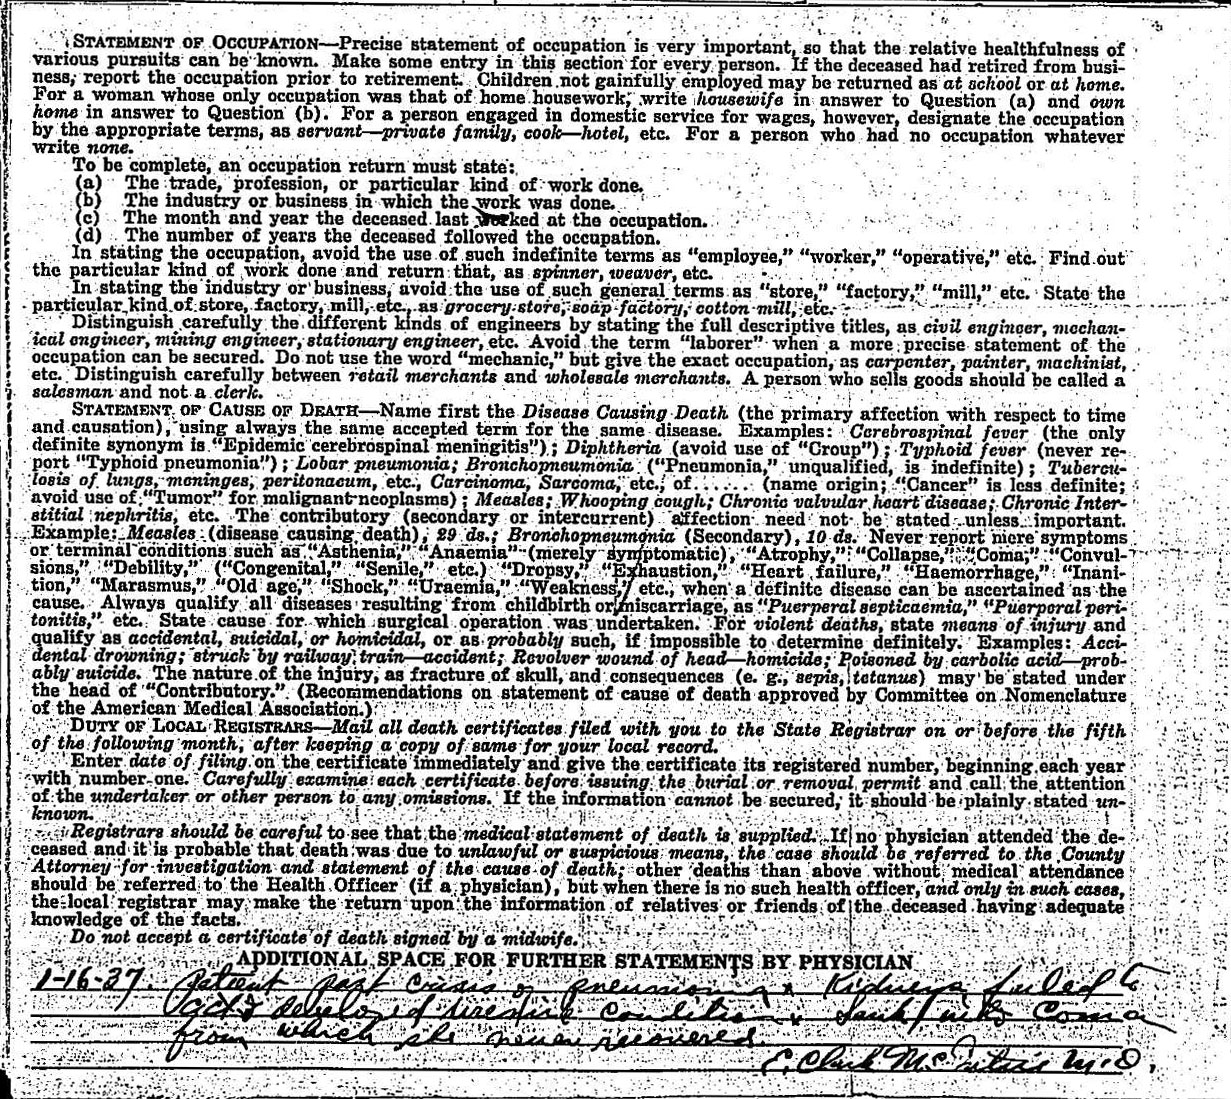 STATEMENT OF OCCUPATION—Precise statement of occupation is very important, so that the relative healthfulness of
various pursuits can be known. Make some entry in this section for every person. If the deceased had retired from busi-
ness, report the occupation prior to retirement. Children not gainfully employed may be returned as at school or at home.
For a woman whose only occupation was that of home housework, write housewife in answer to Question (a) and own
home in answer to Question (b). For a person engaged in domestic service for wages, however, designate the occupation
by the appropriate terms, as servant—private family, cook—hotel, etc. For a person who had no occupation whatever
write none.
To be complete, an occupation return must state:
(a) The trade, profession, or particular kind of work done.
(b) The industry or business in which the work was done.
(c) The month and year the deceased last worked at the occupation.
(d) The number of years the deceased followed the occupation.
In stating the occupation, avoid the use of such indefinite terms as “employee,” “worker,” “operative,” etc. Find out
the particular kind of work done and return that, as spinner, weaver, etc.
In stating the industry or business, avoid the use of such general terms as “store,” “factory,” “mill,” etc. State the
particular kind of store, factory, mill, etc., as grocery store, soap factory, cotton mill, etc.
Distinguish carefully the different kinds of engineers by stating the full descriptive titles, as civil engineer, mechan-
ical engineer, mining engineer, stationary engineer, etc. Avoid the term “laborer” when a more precise statement of the
occupation can be secured. Do not use the word “mechanic,” but give the exact occupation, as carpenter, painter, machinist,
etc. Distinguish carefully between retail merchants and wholesale merchants. A person who sells goods should be called a
salesman and not a clerk.
STATEMENT OF CAUSE OF DEATH—Name first the Disease Causing Death (the primary affection with respect to time
and causation), using always the same accepted term for the same disease. Examples: Cerebrospinal fever (the only
definite synonym is “Epidemic cerebrospinal meningitis”); Diphtheria (avoid use of “Croup”); Typhoid fever (never re-
port “Typhoid pneumonia”); Lobar pneumonia; Bronchopneumonia (“Pneumonia,” unqualified, is indefinite); Tubercu-
losis of lungs, meninges, peritonaeum, etc., Carcinoma, Sarcoma, etc., of...... (name origin; “Cancer” is less definite;
avoid use of “Tumor” for malignant neoplasms); Measles; Whooping cough; Chronic valvular heart disease; Chronic Inter-
stitial nephritis, etc. The contributory (secondary or intercurrent) affection need not be stated unless important.
Example: Measles (disease causing death), 29 ds.; Bronchopneumonia (Secondary), 10 ds. Never report mere symptoms
or terminal conditions such as “Asthenia,” “Anaemia” (merely symptomatic), “Atrophy,” “Collapse,” “Coma,” “Convul-
sions,” “Debility,” (“Congenital,” “Senile,” etc.) “Dropsy,” “Exhaustion,” “Heart failure,” “Haemorrhage,” “Inani-
tion,” “Marasmus,” “Old age,” “Shock,” “Uraemia,” “Weakness,” etc., when a definite disease can be ascertained as the
cause. Always qualify all diseases resulting from childbirth or miscarriage, as “Puerperal septicaemia,” “Puerporal peri-
tonitis,” etc. State cause for which surgical operation was undertaken. For violent deaths, state means of injury and
qualify as accidental, suicidal, or homicidal, or as probably such, if impossible to determine definitely. Examples: Acci-
dental drowning; struck by railway train—accident; Revolver wound of head—homicide; Poisoned by carbolic acid—prob-
ably suicide. The nature of the injury, as fracture of skull, and consequences (e. g., sepis, tetanus) may be stated under
the head of “Contributory.” (Recommendations on statement of cause of death approved by Committee on Nomenclature
of the American Medical Association.)
DUTY OF LOCAL REGISTRARS—Mail all death certificates filed with you to the State Registrar on or before the fifth
of the following month, after keeping a copy of same for your local record.
Enter date of filing on the certificate immediately and give the certificate its registered number, beginning each year
with number one. Carefully examine each certificate before issuing the burial or removal permit and call the attention
of the undertaker or other person to any omissions. If the information cannot be secured, it should be plainly stated un-
known.
Registrars should be careful to see that the medical statement of death is supplied. If no physician attended the de-
ceased and it is probable that death was due to unlawful or suspicious means, the case should be referred to the County
Attorney for investigation and statement of the cause of death; other deaths than above without medical attendance
should be referred to the Health Officer (if a physician), but when there is no such health officer, and only in such cases,
the local registrar may make the return upon the information of relatives or friends of the deceased having adequate
knowledge of the facts.
Do not accept a certificate of death signed by a midwife.
ADDITIONAL SPACE FOR FURTHER STATEMENTS BY PHYSICIAN
1-16-37. Patient past crisis of pneumonia & Kidneys failed to
act & developed uremic condition & sank into Coma
from which she never recovered.
E. Clark M.D.